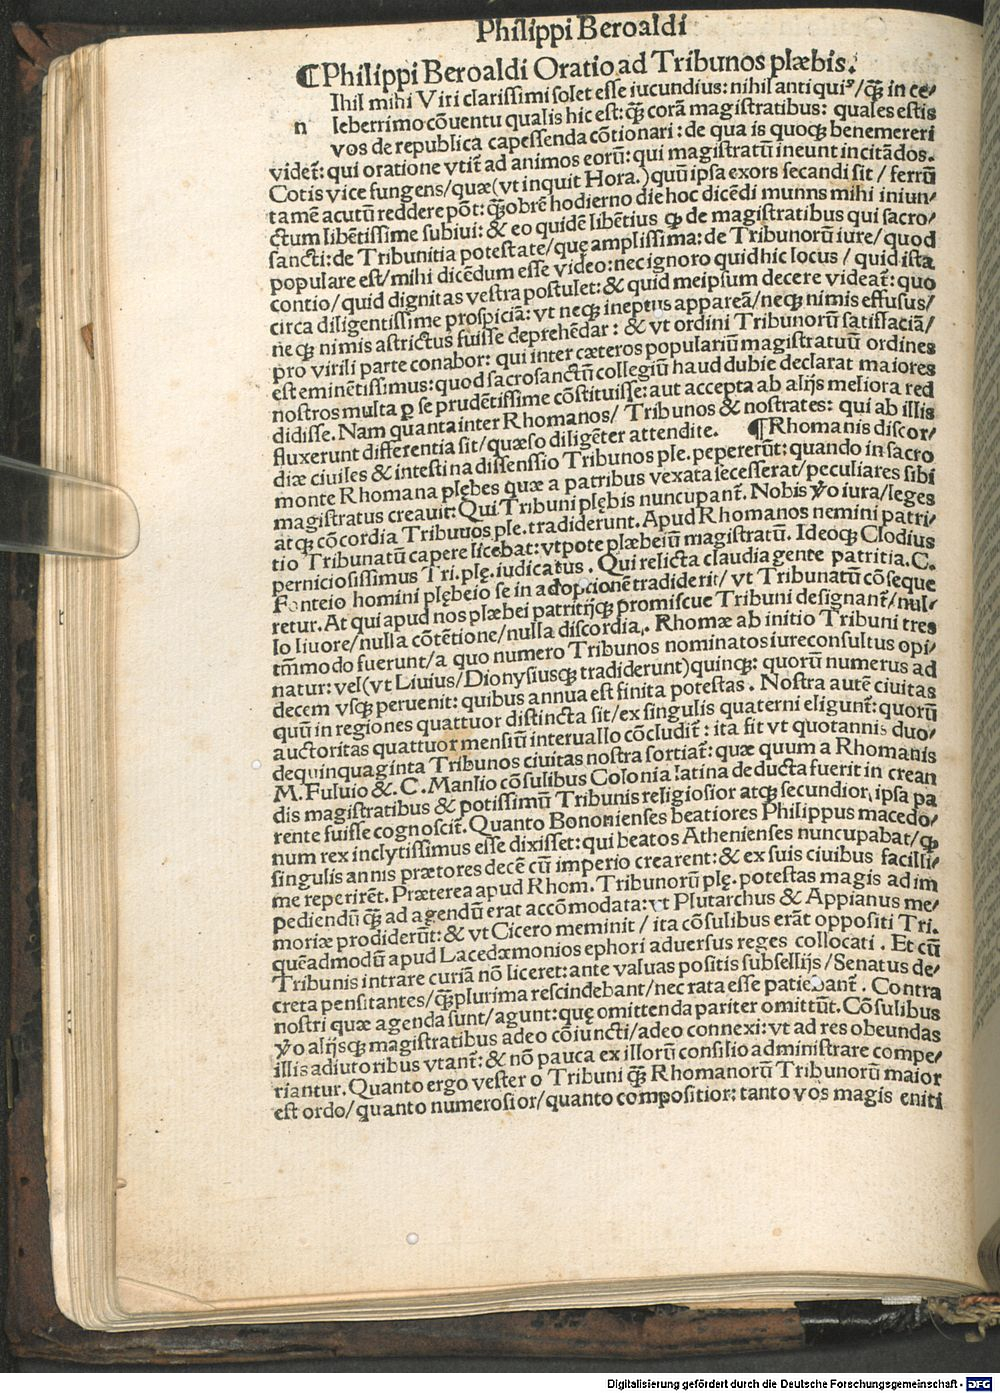 Philippi Beroaldi
¶Philippi Beroaldi Oratio ad Tribunos plæbis.
Ihil mihi Viri clarissimi solet esse iucundius: nihil antiquiꝰ/ꝙ̃ in ce/
n leberrimo cōuentu qualis hic est: ꝙ̃ corā magistratibus: quales estis
vos de republica capessenda cōtionari: de qua is quoqꝫ benemereri
videt̃: qui oratione vtit̃ ad animos eorū: qui magistratū ineunt incitādos.
Cotis vice fungens/quæ(vt inquit Hora.)quū ipsa exors secandi sit / ferrū
tamē acutū reddere pōt: ꝙ̃obrē hodierno die hoc dicēdi munns mihi iniun/
ctum libētissime subiui: & eo quidē libētius ꝙ de magistratibus qui sacro/
sancti: de Tribunitia potestate/quę amplissima: de Tribunorū iure/quod
populare est/mihi dicēdum esse video: nec ignoro quid hic locus / quid ista
contio/quid dignitas vestra postulet: & quid meipsum decere videat̃: quo
circa diligentissime prospiciā: vt neqꝫ ineptus appareā/neqꝫ nimis effusus/
neqꝫ nimis astrictus fuisse deprehēdar: & vt ordini Tribunorū satisfaciā/
pro virili parte conabor: qui inter cæteros popularium magistratuū ordines
est eminētissimus: quod sacrosanctū collegiū haud dubie declarat maiores
nostros multa ꝑ se prudētissime cōstituisse: aut accepta ab alijs meliora red
didisse. Nam quanta inter Rhomanos/ Tribunos & nostrates: qui ab illis
fluxerunt differentia sit/quæso diligēter attendite. ¶Rhomanis discor/
diæ ciuiles & intestina dissenssio Tribunos ple. pepererūt: quando in sacro
monte Rhomana plębes quæ a patribus vexata secesserat/peculiares sibi
magistratus creauit: Qui Tribuni plębis nuncupant̃. Nobis ꝟo iura/leges
atqꝫ cōcordia Tribuuos ple. tradiderunt. Apud Rhomanos nemini patri/
tio Tribunatū capere licebat: vtpote plæbeiū magistratū. Ideoqꝫ Clodius
perniciosissimus Tri. plę. iudicatus . Qui relicta claudia gente patritia. C.
Fonteio homini plębeio se in adopcionē tradiderit/ vt Tribunatū cōseque
retur. At qui apud nos plæbei patritijqꝫ promiscue Tribuni designant̃/nul/
lo liuore/nulla cōtētione/nulla discordia. Rhomæ ab initio Tribuni tres
tm̄modo fuerunt/a quo numero Tribunos nominatos iureconsultus opi/
natur: vel(vt Liuius/Dionysiusqꝫ tradiderunt)quinqꝫ: quorū numerus ad
decem vsqꝫ peruenit: quibus annua est finita potestas . Nostra autē ciuitas
quū in regiones quattuor distincta sit/ex singulis quaterni eligunt̃: quorū
auctoritas quattuor mensiū interuallo cōcludit̃ : ita fit vt quotannis duo/
dequinquaginta Tribunos ciuitas nostra sortiat̃: quæ quum a Rhomanis
M. Fuluio &. C. Manlio cōsulibus Colonia latina deducta fuerit in crean
dis magistratibus & potissimū Tribunis religiosior atqꝫ secundior, ipsa pa
rente fuisse cognoscit̃. Quanto Bononienses beatiores Philippus macedo/
num rex inclytissimus esse dixisset: qui beatos Athenienses nuncupabat/ꝙ
singulis annis prætores decē cū imperio crearent: & ex suis ciuibus facilli/
me reperirēt. Præterea apud Rhom. Tribunorū plę. potestas magis ad im
pediendū ꝙ̃ ad agendū erat accōmodata: vt Plutarchus & Appianus me/
moriæ prodiderūt: & vt Cicero meminit / ita cōsulibus erāt oppositi Tri.
quēadmodū apud Lacedæmonios ephori aduersus reges collocati . Et cū
Tribunis intrare curiā nō liceret: ante valuas positis subsellijs /Senatus de/
creta pensitantes/ꝙ̃plurima rescindebant/nec rata esse patiebant̃. Contra
nostri quæ agenda sunt/agunt: quę omittenda pariter omittūt. Cōsulibus
ꝟo alijsqꝫ magistratibus adeo cōiuncti/adeo connexi: vt ad res obeundas
illis adiutoribus vtant̃: & nō pauca ex illorū consilio administrare compe/
riantur. Quanto ergo vester o Tribuni ꝙ̃ Rhomanorū Tribunorū maior
est ordo/quanto numerosior/quanto compositior: tanto vos magis eniti
Digitalisierung gefördert durch die Deutsche Forschungsgemeinschaft - DFG